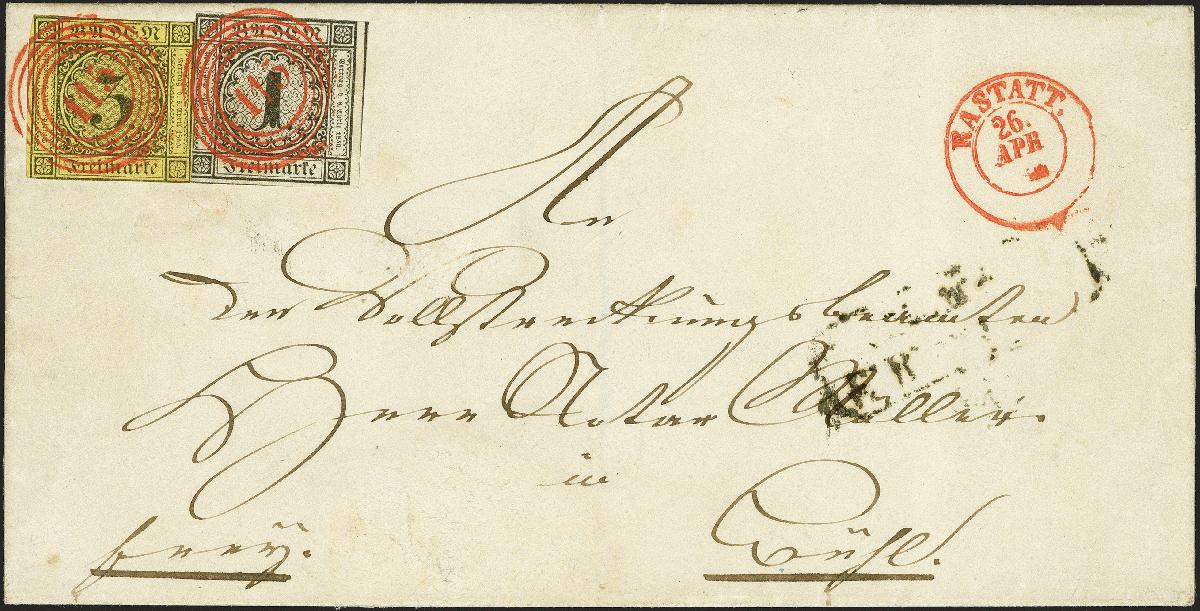 BADEN
BADEN
3
1
115
115
Freimarke
Freimarke
RASTATT.
26.
APR
An
den Vollstreckungsbeamten
Herrn Notar Müller
in
frey.
Bühl.